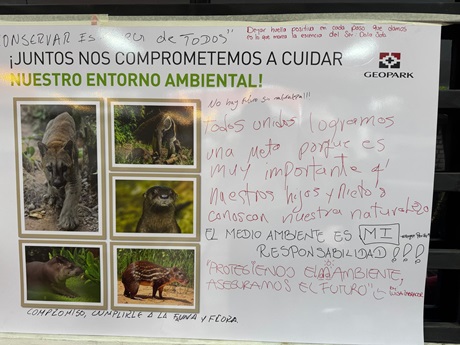 CONSERVAR ES DE TODOS"
Dejar huella positiva en cada paso que damos
es lo que marca la esencia del Ser
¡JUNTOS NOS COMPROMETEMOS A CUIDAR
NUESTRO ENTORNO AMBIENTAL!
GEOPARK
No hay futuro sin naturaleza!!!
Todos unidos logramos
una meta porque es
muy importante q'
nuestros hijos y nietos
conoscan nuestra naturaleza
EL MEDIO AMBIENTE ES MI
RESPONSABILIDAD!!!
"PROTEGIENDO EL AMBIENTE,
ASEGURAMOS EL FUTURO"
COMPROMISO, CUMPLIRLE A LA FAUNA Y FLORA.